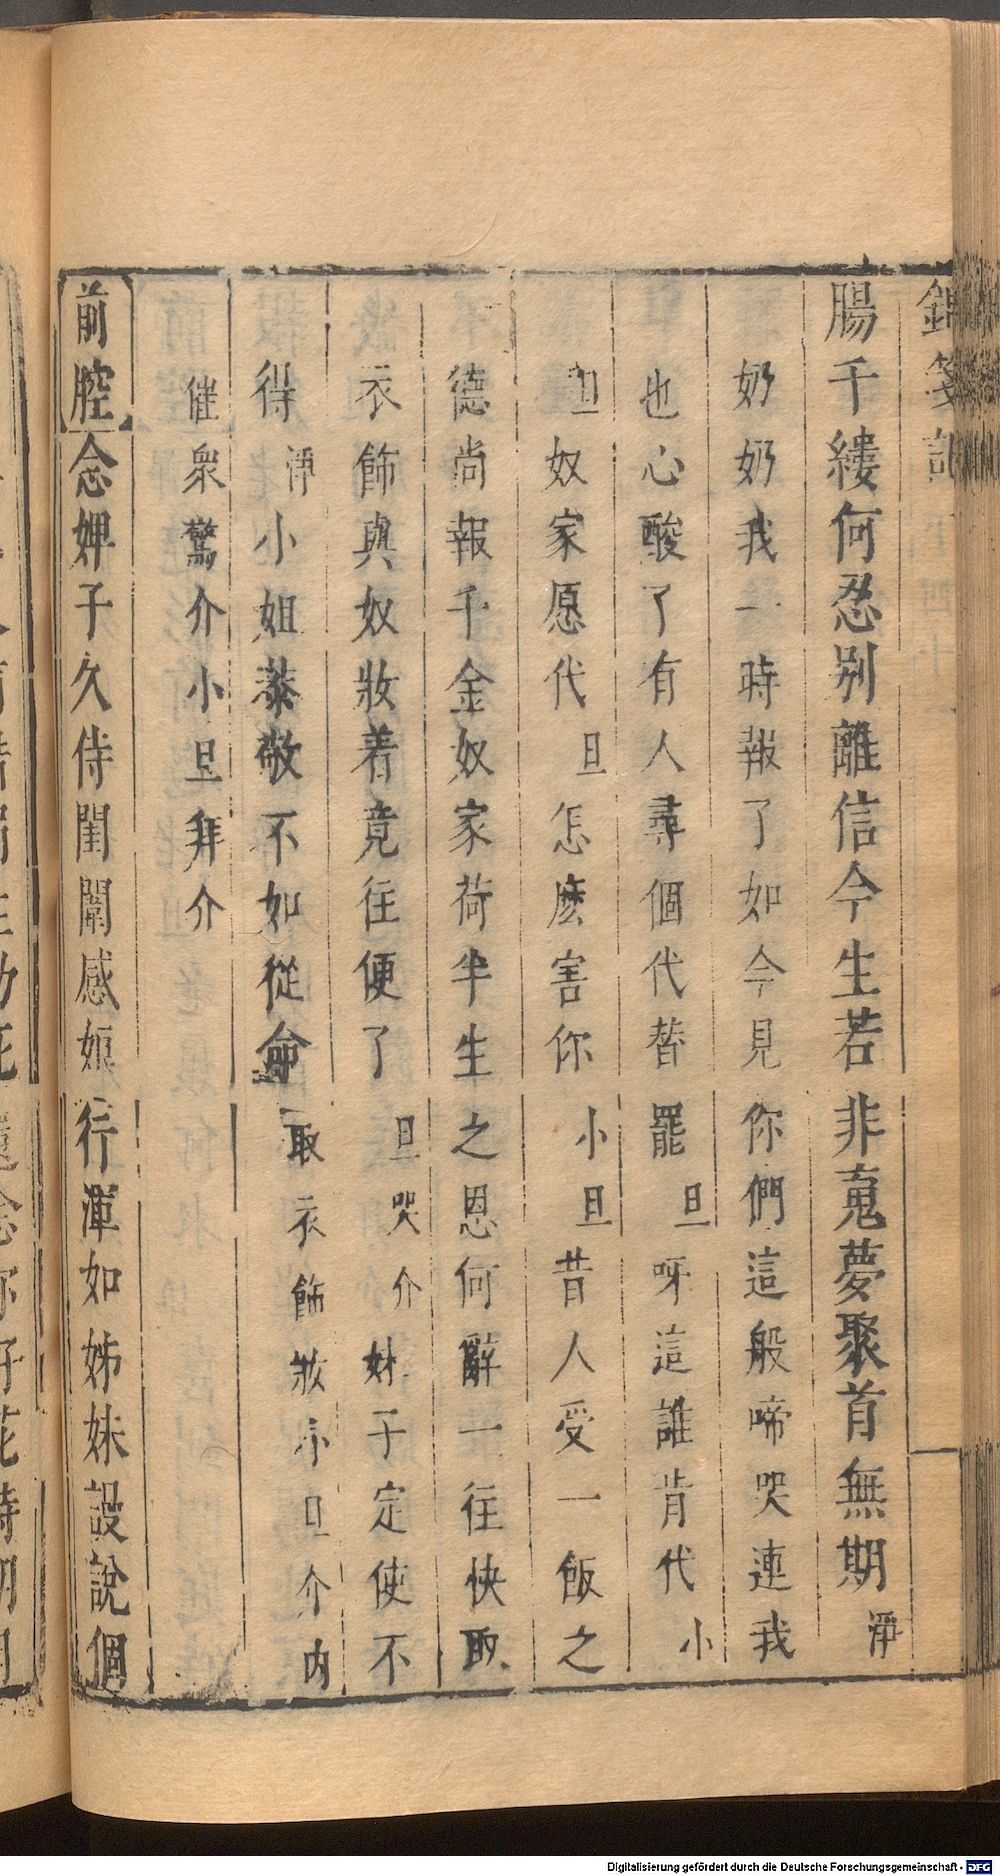 錦箋記
腸千縷何忍别離信今生若非䰟夢聚首無期淨
奶奶我一時報了如今見你們這般啼哭連我
也心酸了有人尋個代替罷旦呀這誰肯代小
旦奴家愿代旦怎麽害你小旦昔人受一飯之
德尚報千金奴家荷半生之恩何辭一往快取
衣飾與奴妝着竟往便了旦哭介妹子定使不
得淨小姐恭敬不如從命取衣飾妝小旦介内
催衆驚介小旦拜介
前腔念婢子久侍閨闈感娘行渾如姊妹設說個
Digitalisierung gefördert durch die Deutsche Forschungsgemeinschaft - DFG